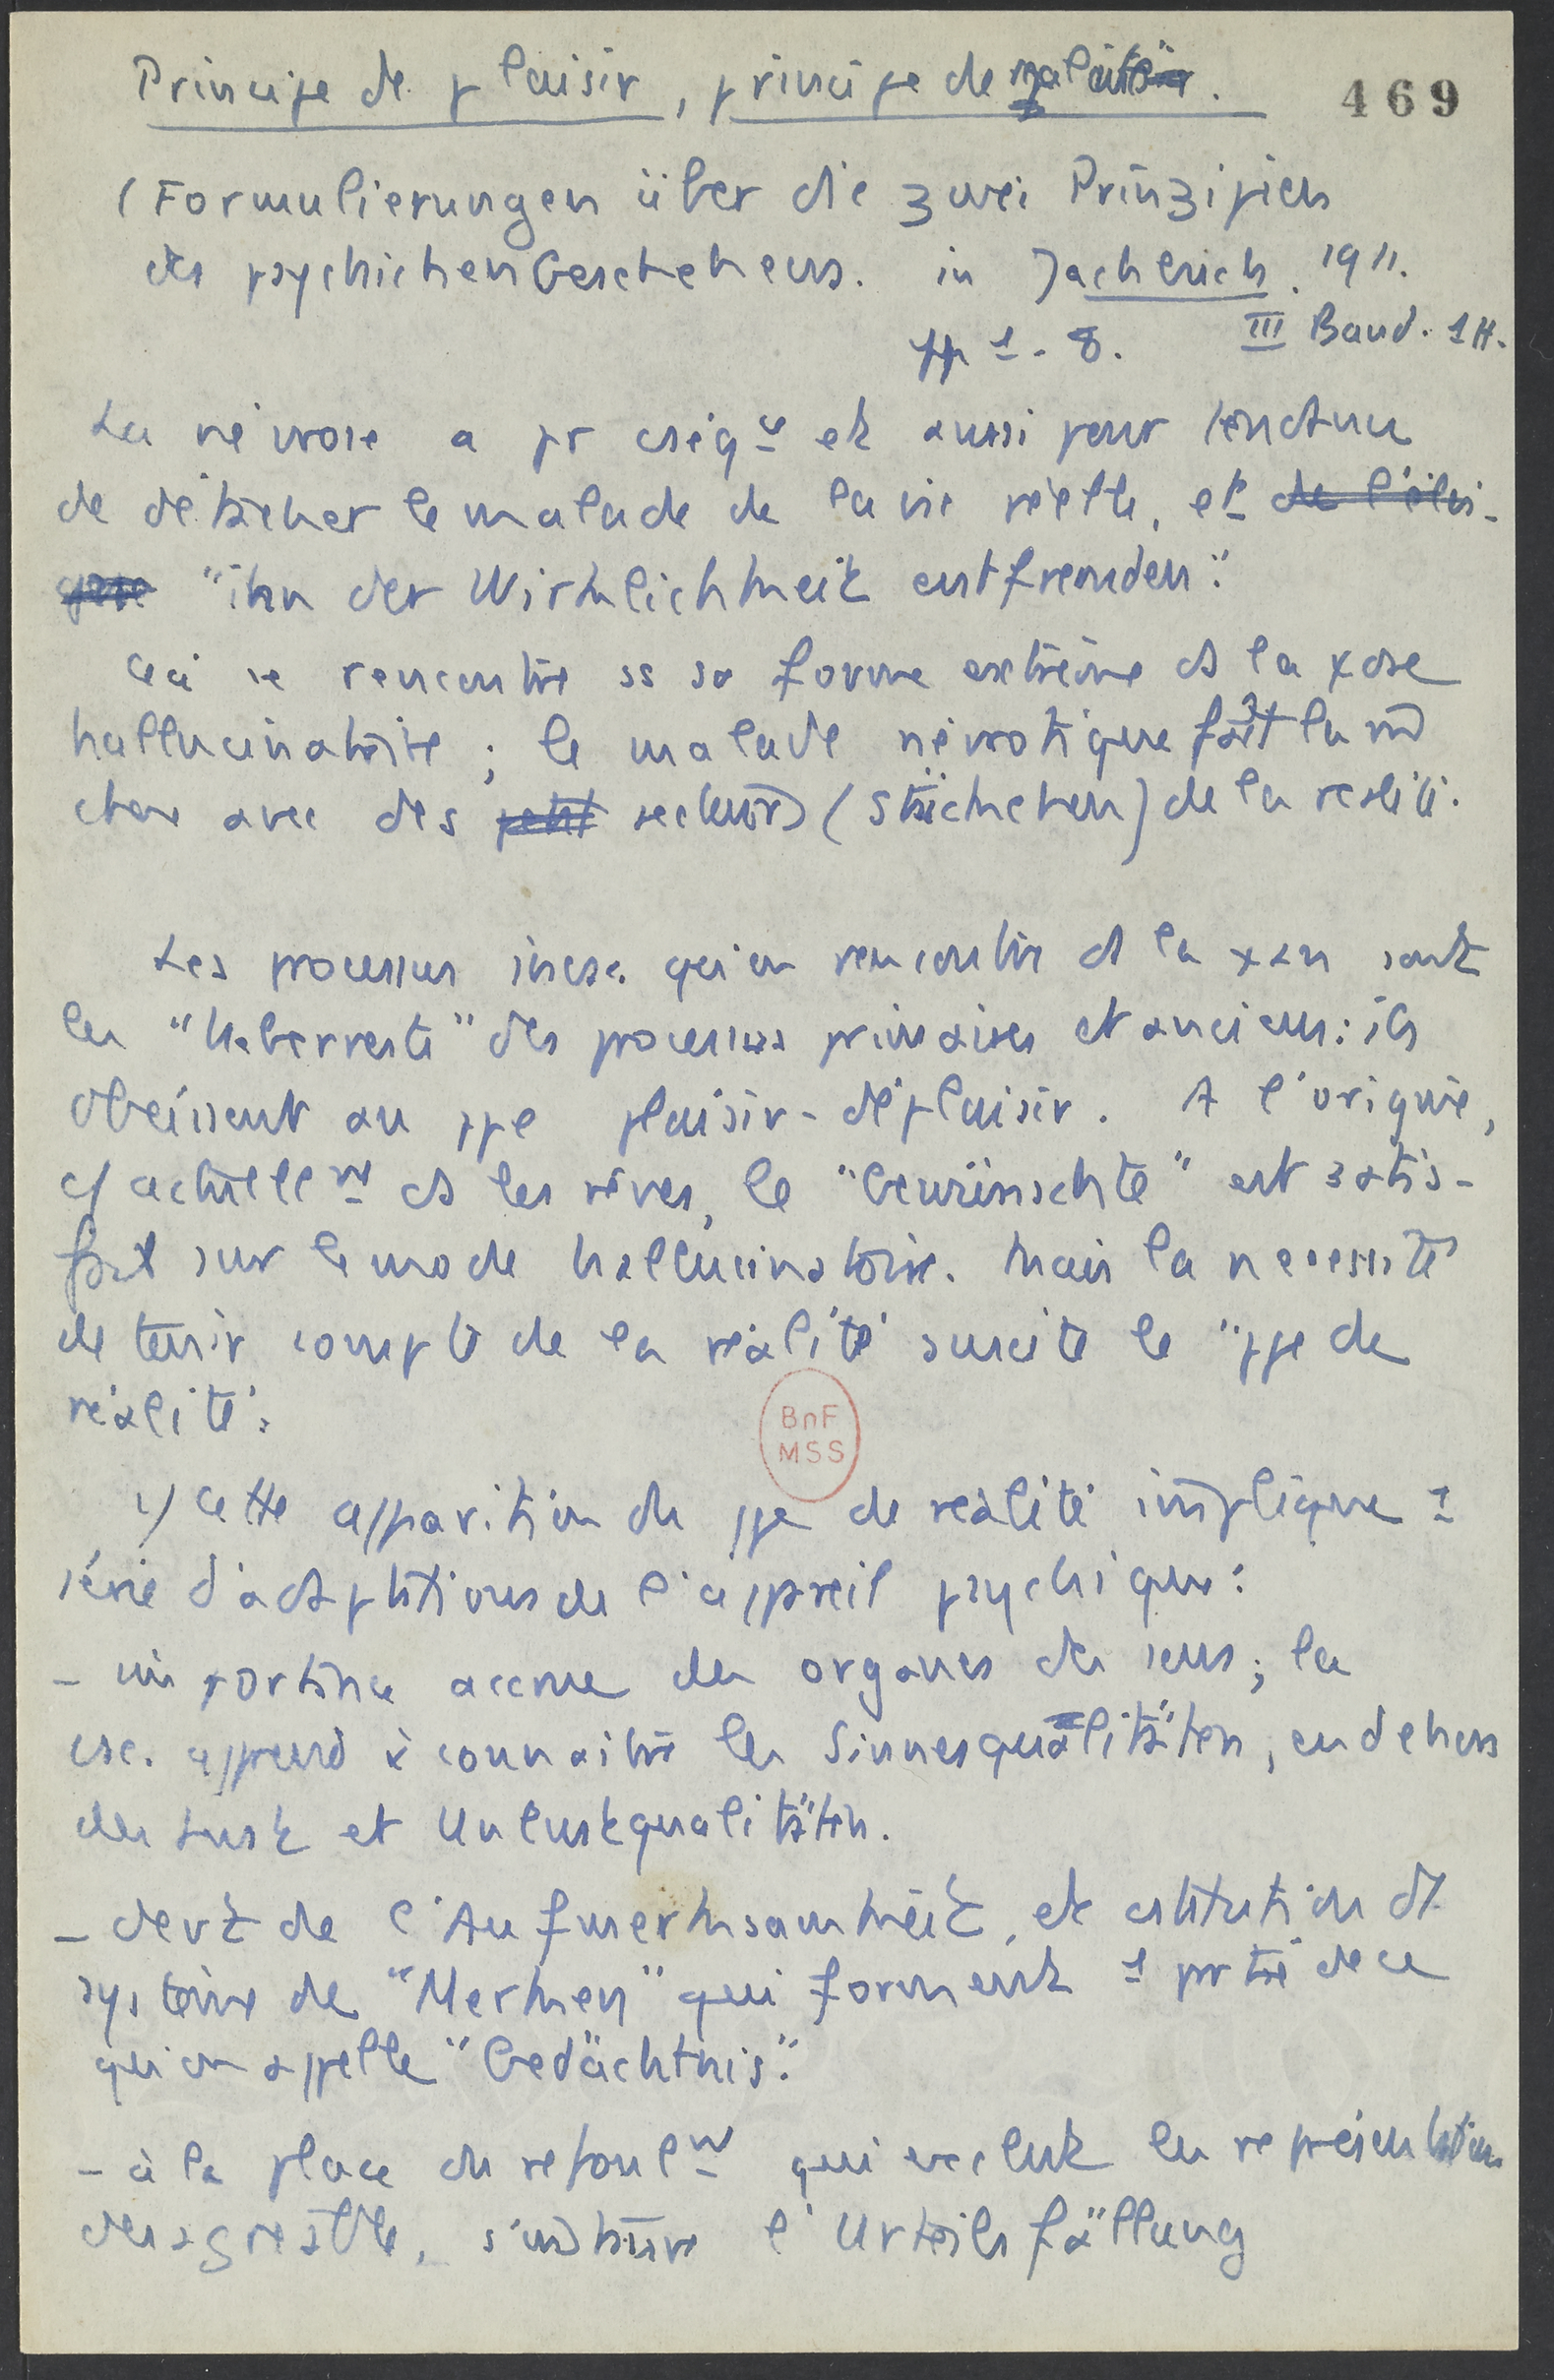 Principe de plaisir, principe de réalité.
469
(Formulierungen über die zwei Prinzipien
des psychichen Geschehens. in Jachbuch. 1911.
pp 1-8. III Band. 1 H.
La névrose a pr cséqce et aussi pour fonction
de détacher le malade de la vie réelle, et de l'éloi-
gner "ihn der Wirklichkeit entfremden".
Ceci se rencontre ss sa forme extrême ds la ψose
hallucinatoire ; le malade névrotique fait la m̂
chose avec des petit secteurs (Stückchen) de la réalité.
Les processus incsc. qu'on rencontre ds la ψan sont
les "Ueberreste" des processus primaires et anciens : ils
obéissent au ppe plaisir-déplaisir. A l'origine,
c/ actuellemt ds les rêves, le "Gewünschte" est satis-
fait sur le mode hallucinatoire. Mais la nécessité
de tenir compte de la réalité suscite le "ppe de
réalité".
1/ Cette apparition du ppe de réalité implique 1
série d'adaptations de l'appareil psychique :
- importance accrue des organes des sens ; la
csc. apprend à connaître les Sinnesqualitäten, en dehors
des Lust et Unlustqualitäten.
- devt de l'Aufmerksamkeit, et cstitution d'1
système de "Merken" qui forment 1 partie de ce
qu'on appelle "Gedächtnis".
- à la place du refoulmt qui exclut les représentations
désagréable, s'instaure l'Urteilsfällung
BnF
MSS